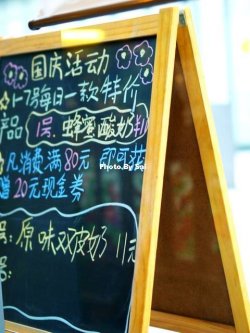 国庆活动
☆1-7号每日一款特价
产品 1号.蜂蜜酸奶
☆凡消费满80元 即可获
赠20元现金券
Photo.By Sai
号:原味双皮奶 11元
号: